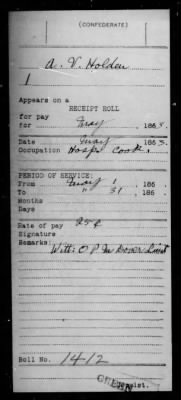 (CONFEDERATE)
A. V. Holden
1
Appears on a
RECEIPT ROLL
for pay
for May , 1863.
Date , 1863.
Occupation Hosp. Cook.
PERIOD OF SERVICE:
From May 1 , 186
To " 31 , 186
Months
Days
Rate of pay 25¢
Signature
Remarks:
Witt:
Roll No. 1412
Copyist.